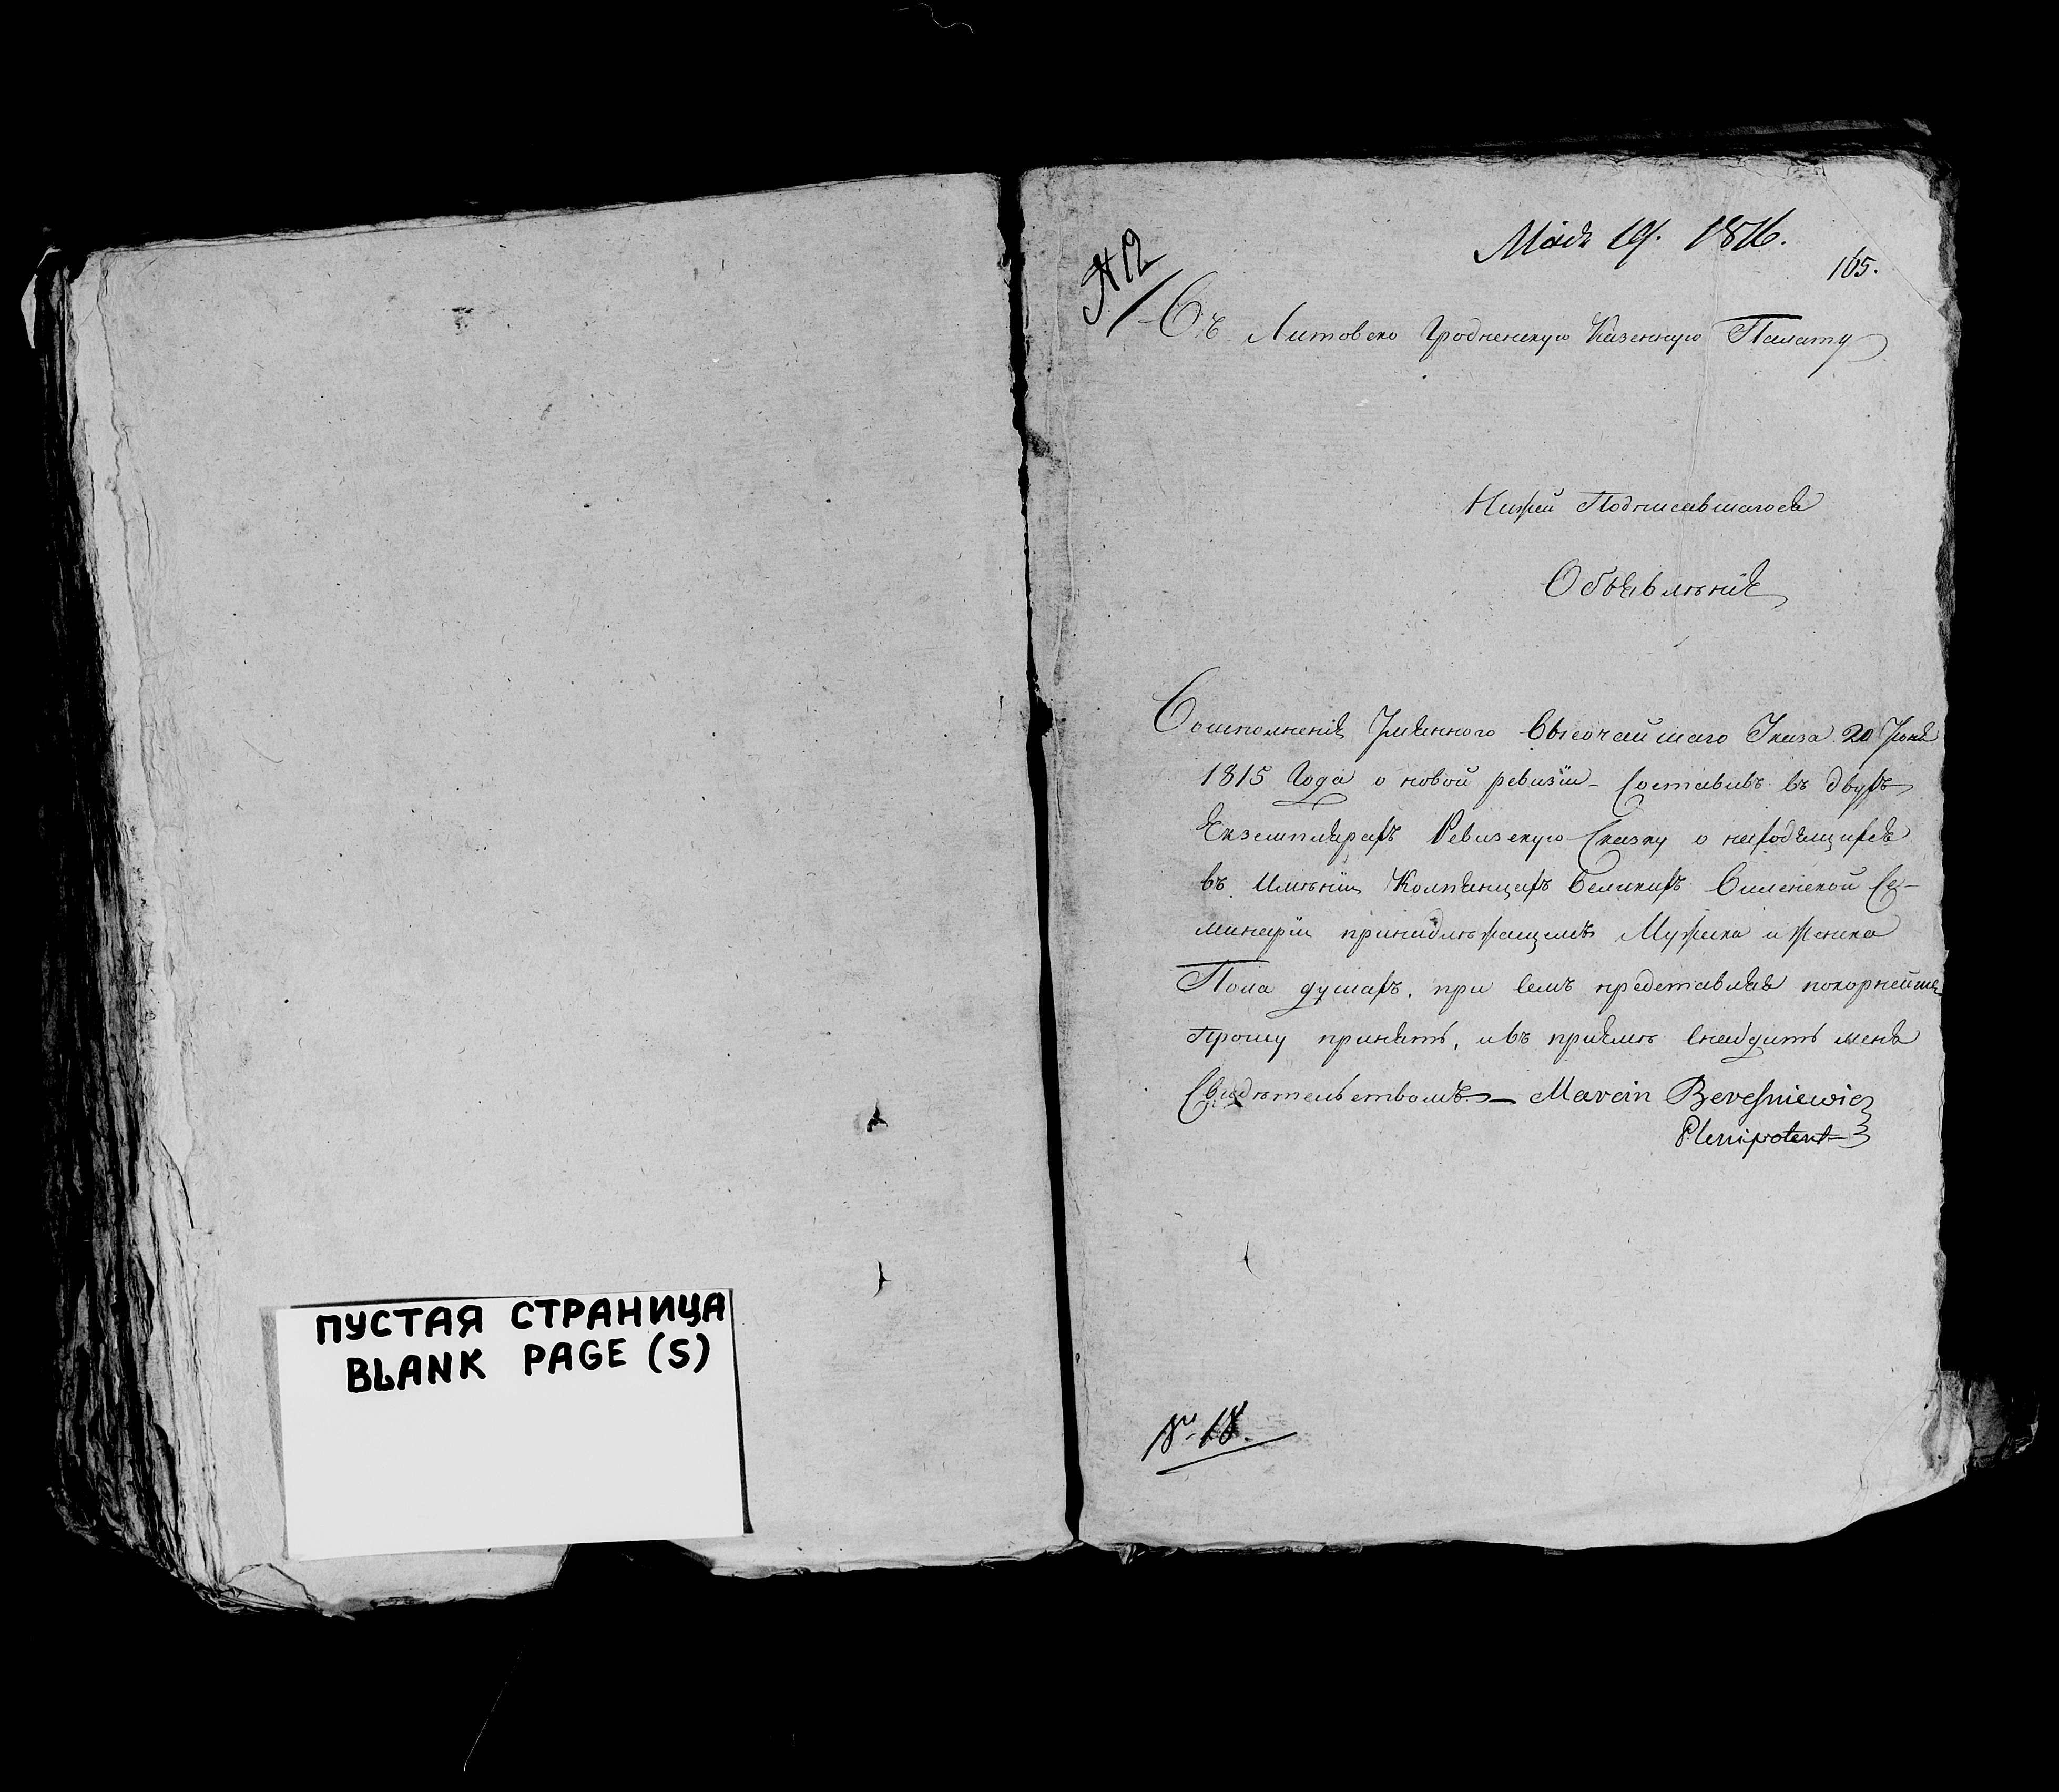 ПУСТАЯ СТРАНИЦА
BLANK PAGE (S)
№ 12
Маія 19. 1816.
165.
Въ Литовско Гродненскую Казенную Палату
Нижей Подписавшагося
Объявленіе
Воисполненія Имяннаго Высочайшаго Указа 20 Юня
1815 Года о новой ревизіи - Составивъ въ двухъ
Екземплярахъ Ревизскую Сказку о находящихся
въ Имѣніи Великихъ Виленской Се-
минаріи принадлежащемъ Мужска и Женска
Пола душахъ, при семъ представляя покорнейше
прошу принять, и въ пріемѣ снабдить меня
Свидѣтельствомъ. — Marcin Beresniewicz
Plenipotent
№ 18.